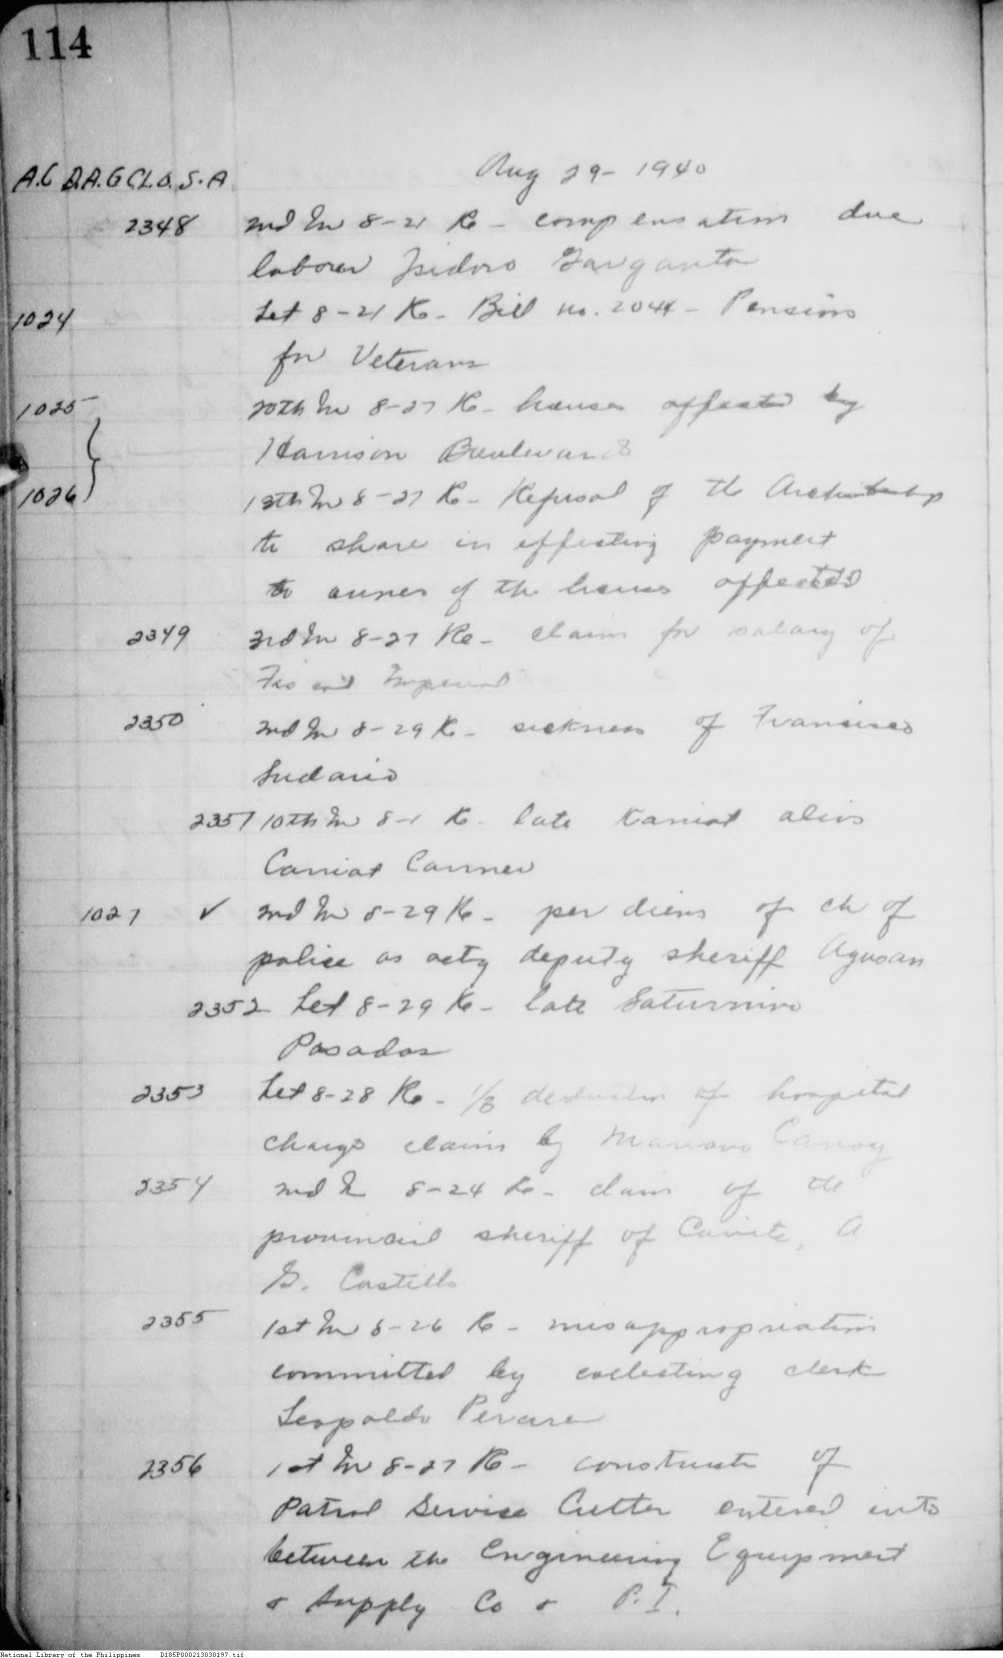 114
Aug 29- 1940
A.C D.A.G CL.O. S.A
2348 2nd In 8-21 Re - compensation due
laborer Isidoro Garganta
1024 Let 8-21 Re - Bill no. 2044 - Pensions
for Veterans
1025 20th In 8-27 Re - houses affected by
Harrison Boulevard
1026 13th In 8-27 Re - Refusal of the Archbishop
to share in effecting payment
to owner of the houses affected
2349 3rd In 8-27 Re - claim for salary of
Imperial
2350 2nd In 8-29 Re - sickness of Francisco
Sudario
2351 10th In 8-1 Re - late Kaniat alias
Caniat Canner
1027 ✓ 2nd In 8-29 Re - per diems of ch of
police as actg deputy sheriff Agusan
2352 Let 8-29 Re - late Saturnino
Posadas
2353 Let 8-28 Re - 1/3 deduction of hospital
charge claims by Mariano
2354 2nd In 8-24 Re - claim of the
provincial sheriff of Cavite, A
G. Castillo
2355 1st In 8-26 Re - misappropriation
committed by collecting clerk
Leopoldo
2356 1st In 8-27 Re - constructn of
Patrol Service Cutter entered into
between the Engineering Equipment
& Supply Co & P.I.
National Library of the Philippines D185P000213030197.tif